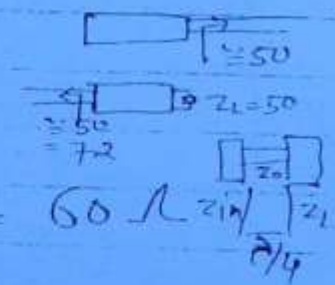 ≅50
Z_L=50
≅50
=72
Z_0
60 Ω Zin Z_L
λ/4